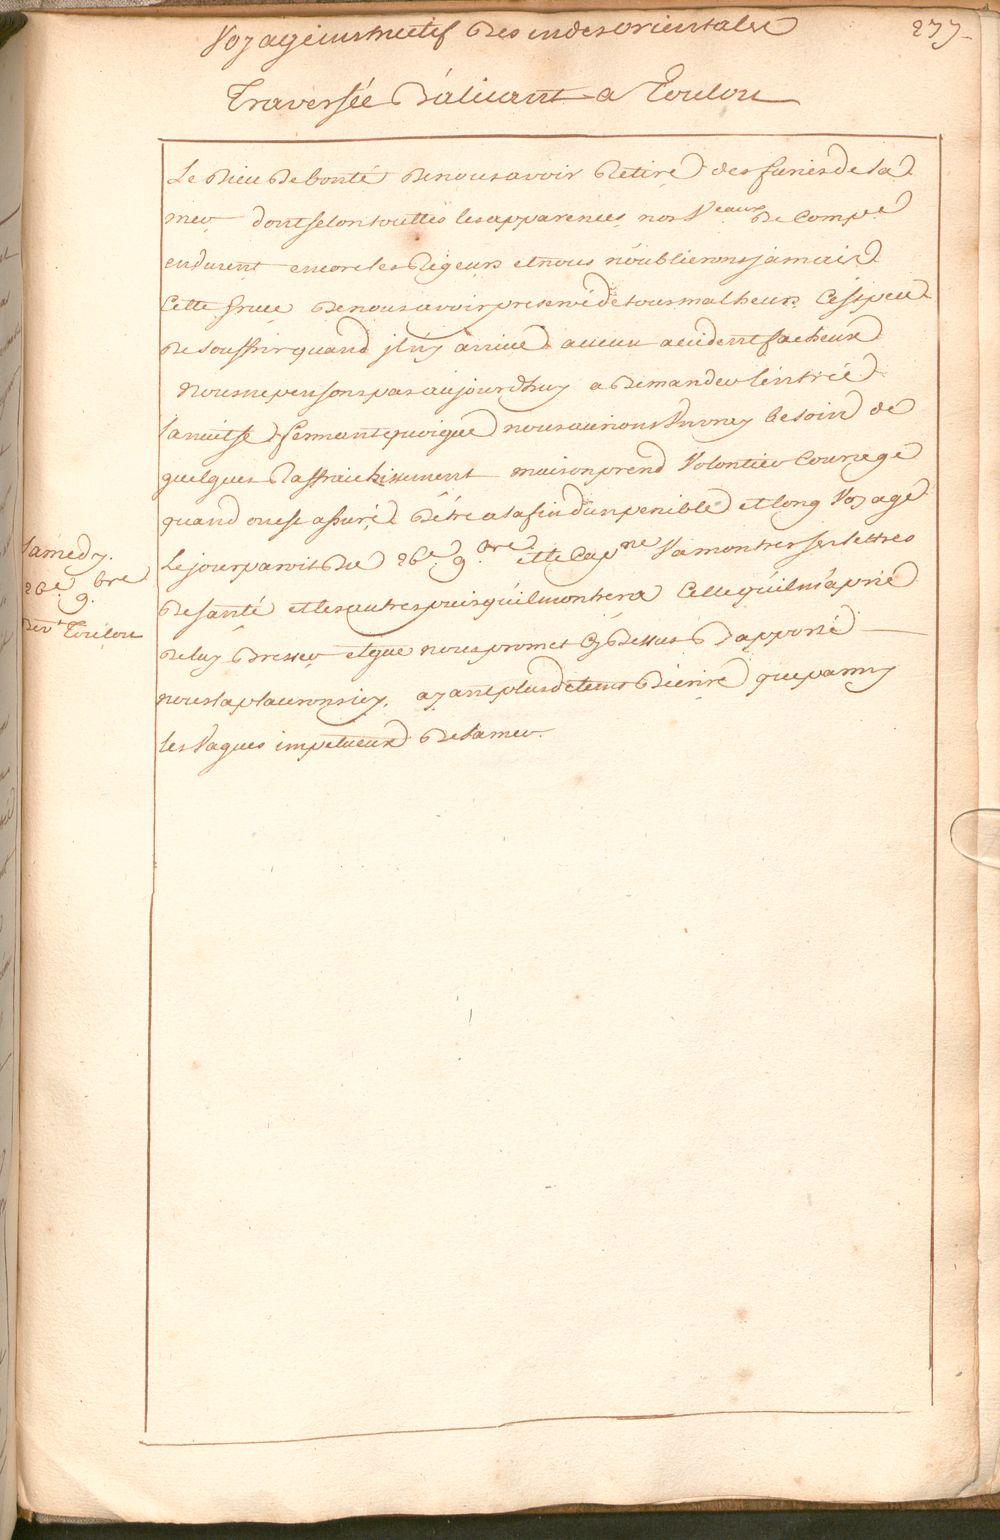 Voyage instructif Des indes orientales 277
Traversée D'alicant a Toulon
Le Dieu De bonté De nous avoir Retiré des furies de La
mer dont selon touttes les apparences nos V.eaux De Compe
endurent encore les Rigeurs et nous n'oublierons jamais
Cette grace De nous avoir preservé de tous malheurs C'est peu
De souffrir quand jl n'y arrive aucun accident facheux
nous ne pensons pas aujourdhuy a Demander l'entrée
la nuit se fermant quoique nous aurions Du vray besoin de
quelques Raffraichissement mais on prend Volontier Courage
quand on est assuré D'être a la fin d'un penible et long Voyage
Samedy.
26e. 9.bre
Devt Toulon
Le jour paroit Du 26e. 9.bre et le Capne Va montrer ses lettres
De santé et les autres puisqu'il montrera Celle qu'il m'a prié
De luy Dresser et que nous promet Cy Dessus D'apporté
nous la placerons icy, ayant plus de tems D'ecrire que parmy
les Vagues impetueux De la mer.